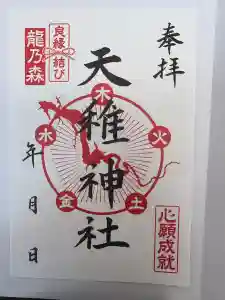 奉拝
天稚神社
良縁結び
龍乃森
木
火
土
金
水
心願成就
年月日